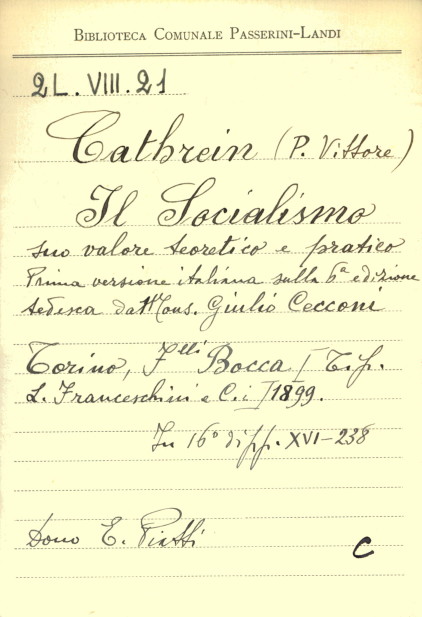 BIBLIOTECA COMUNALE PASSERINI-LANDI
2L. VIII. 21
Cathrein (P. Vittore)
Il Socialismo
suo valore teoretico e pratico
Prima versione italiana sulla 6ª edizione
tedesca dall'Mons. Giulio Cecconi
Torino, Flli Bocca / Tip.
L. Franceschini e C.i / 1899.
In 16° di pp. XVI-238
Dono E. Piatti
C